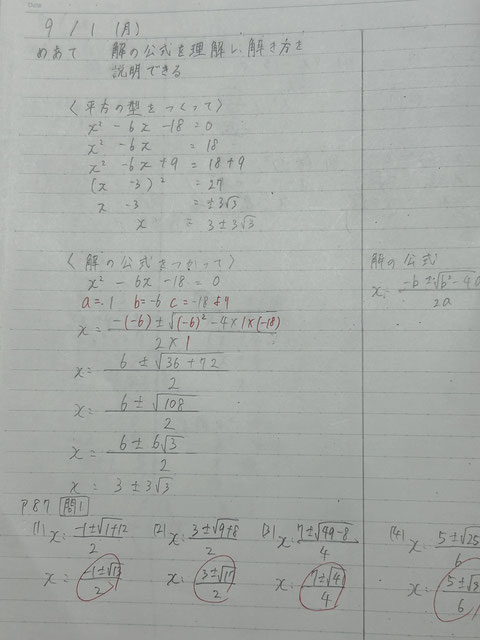 9 / 1 (月)
めあて 解の公式を理解し、解き方を
説明できる
〈平方の型をつくって〉
x² - 6x - 18 = 0
x² - 6x = 18
x² - 6x + 9 = 18 + 9
(x - 3)² = 27
x - 3 = ±3√3
x = 3 ± 3√3
〈解の公式をつかって〉
x² - 6x - 18 = 0
a = 1 b = -6 c = -18
x = -(-6) ± √(-6)² - 4 × 1 × (-18) / 2 × 1
x = 6 ± √36 + 72 / 2
x = 6 ± √108 / 2
x = 6 ± 6√3 / 2
x = 3 ± 3√3
解の公式
x = -b ± √b² - 4a / 2a
P87 問1
(1) x = -1 ± √1+12 / 2
x = -1 ± √13 / 2
(2) x = 3 ± √9+8 / 2
x = 3 ± √17 / 2
(3) x = 7 ± √49-8 / 4
x = 7 ± √41 / 4
(4) x = 5 ± √25 / 6
x = 5 ± √ / 6